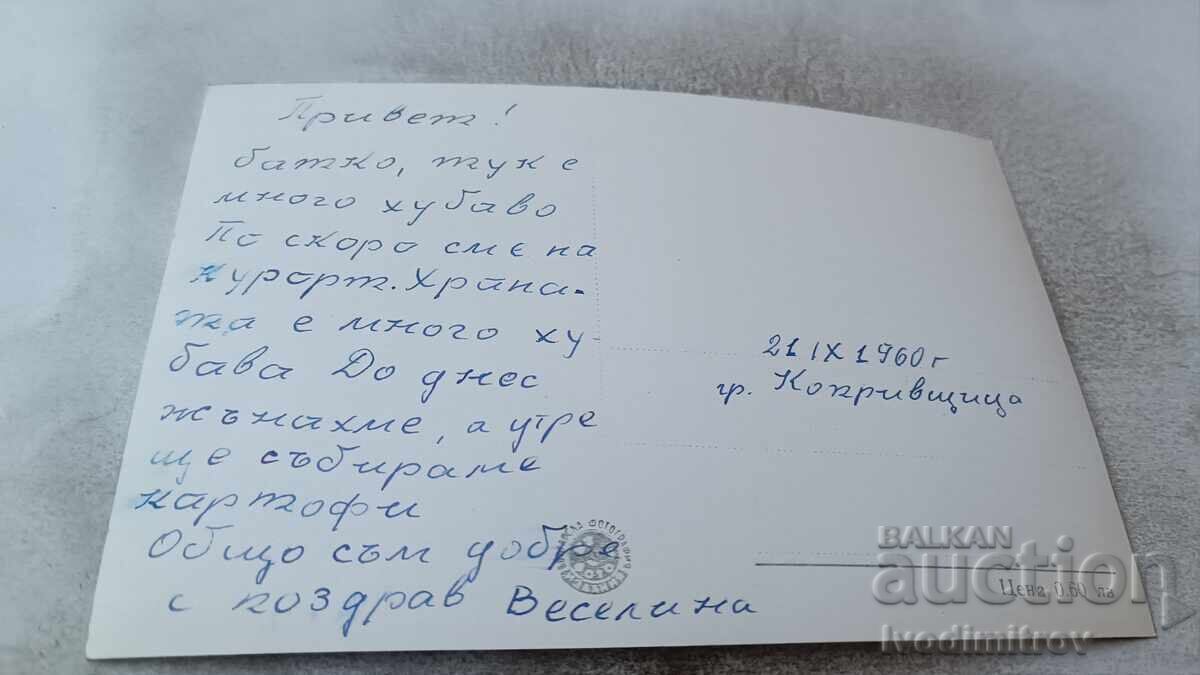 Привет!
батко, тук е
много хубаво
По скоро сме на
курорт. Храна-
та е много ху-
бава До днес
жънахме, а утре
ще събираме
картофи
Общо съм добре
с поздрав Веселина
21 IX 1960 г
гр. Копривщица
Цена 0.60 лв
BALKAN
auction
Ivodimitrov